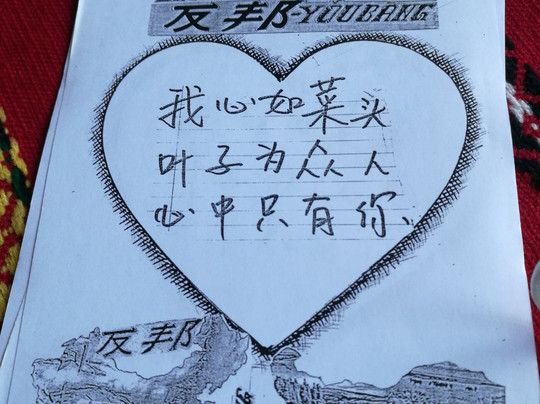 友邦-YOUBANG
我心如菜头
叶子为众人
心中只有你、
友邦